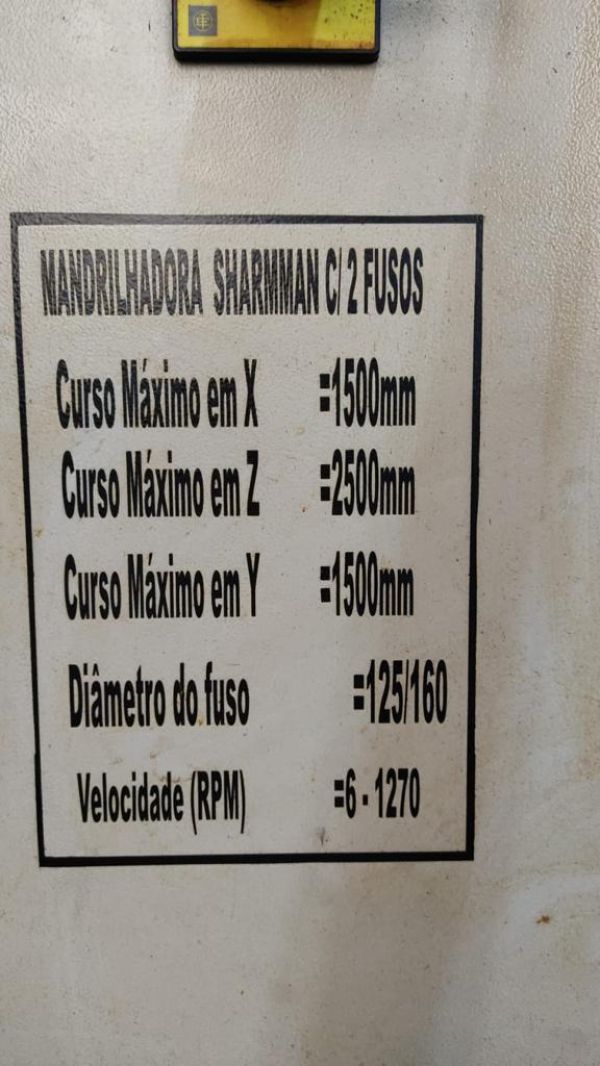 MANDRILHADORA SHARMMAN C/ 2 FUSOS
Curso Máximo em X =1500mm
Curso Máximo em Z =2500mm
Curso Máximo em Y =1500mm
Diâmetro do fuso =125/160
Velocidade (RPM) =6 - 1270